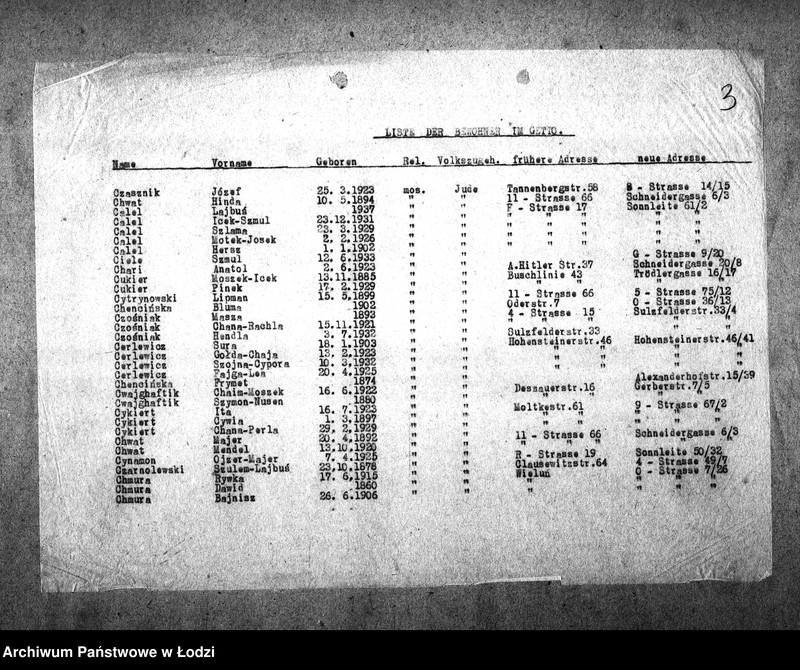 3
LISTE DER BEWOHNER IM GETTO.
Name Vorname Geboren Rel. Volkszugeh. frühere Adresse neue Adresse
Czasznik Józef 25. 3.1923 mos. Jude Tannenbergstr.58 8 - Strasse 14/15
Chwat Hinda 10. 5.1894 " " 11 - Strasse 66 Schneidergasse 6/3
Calel Lajbuś 1937 " " F - Strasse 17 Sonnleite 61/2
Calel Icek-Szmul 23.12.1931 " " " " " "
Calel Szlama 23. 3.1929 " " " " " "
Calel Motek-Josek 2. 2.1926 " " " " " "
Calel Hersz 1. 1.1902 " " " " " "
Ciele Szmul 12. 6.1933 " " G - Strasse 9/20
Chari Anatol 2. 6.1923 " " A.Hitler Str.37 Schneidergasse 20/8
Cukier Moszek-Icek 13.11.1885 " " Buschlinie 43 Trödlergasse 16/17
Cukier Pinek 17. 2.1929 " " " " " "
Cytrynowski Lipman 15. 5.1899 " " 11 - Strasse 66 5 - Strasse 75/12
Chencińska Bluma 1902 " " Oderstr.7 O - Strasse 36/13
Czośniak Masza 1893 " " 4 - Strasse 15 Sulzfelderstr.33/4
Czośniak Chana-Rachla 15.11.1921 " " " " " "
Czośniak Hendla 3. 7.1932 " " Sulzfelderstr.33 " "
Cerlewicz Sura 18. 1.1903 " " Hohensteinerstr.46 Hohensteinerstr.46/41
Cerlewicz Gołda-Chaja 13. 2.1923 " " " " " "
Cerlewicz Szojna-Cypora 10. 3.1932 " " " " " "
Cerlewicz Fajga-Lea 20. 4.1925 " " " " " "
Chencińska Frymet 1874 " " Alexanderhofstr.15/39
Cwajghaftik Chaim-Moszek 16. 6.1922 " " Dessauerstr.16 Gerberstr.7/5
Cwajghaftik Szymon-Nusen 1880 " " " " " "
Cykiert Ita 16. 7.1923 " " Moltkestr.61 9 - Strasse 67/2
Cykiert Cywia 1. 3.1897 " " " " " " "
Cykiert Chana-Perla 29. 2.1929 " " " " " " "
Chwat Majer 20. 4.1892 " " 11 - Strasse 66 Schneidergasse 6/3
Chwat Mendel 13.10.1920 " " " " " " "
Cynamon Ojzer-Majer 7. 4.1925 " " R - Strasse 19 Sonnleite 50/32
Czarnolewski Szulem-Lajbuś 23.10.1878 " " Clausewitzstr.64 4 - Strasse 49/7
Chmura Rywka 17. 6.1915 " " Wieluń O - Strasse 7/26
Chmura Dawid 1860 " " " " " "
Chmura Bajnisz 26. 6.1906 " " " " " "
Archiwum Państwowe w Łodzi